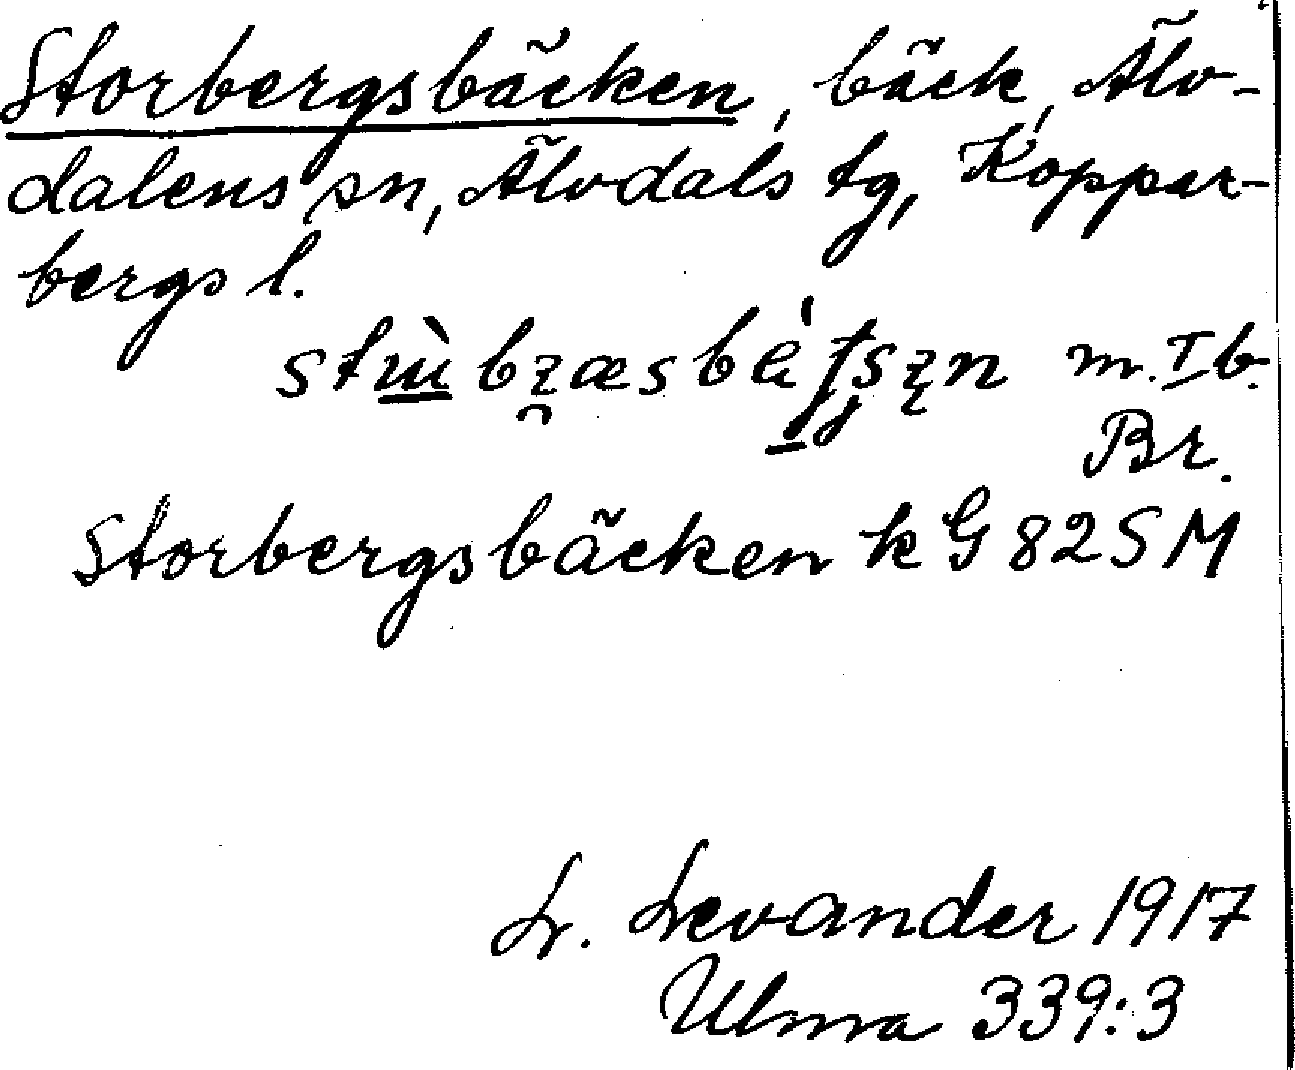 Storbergsbäcken, bäck, Älv-
dalens sn, Älvdals tg, Koppar-
bergs l.
m. I b.
Br.
Storbergsbäcken k G 82 S M
L. Levander 1917
Ulma 339:3